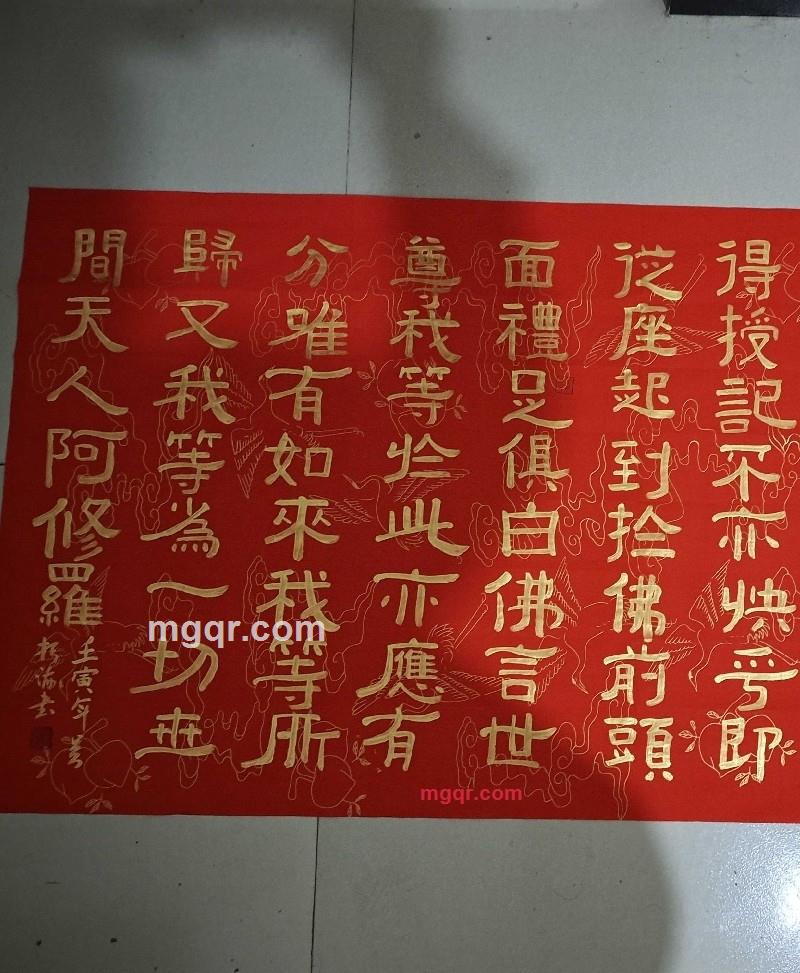 得授記不亦快乎即
從座起到於佛前頭
面禮足俱白佛言世
尊我等於此亦應有
分唯有如來我等所
歸又我等為一切世
間天人阿修羅
壬寅年
書
mgqr.com
mgqr.com